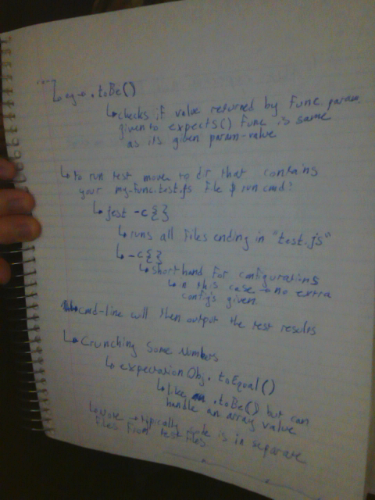 ↳ eg → .toBe()
↳ checks if value returned by func param
given to expects() func is same
as its given param-value
↳ to run test move to dir that contains
your my-func.test.js file & run cmd:
↳ jest -c {}
↳ runs all files ending in "test.js"
↳ -c {}
↳ shorthand for configurations
↳ in this case → no extra
configs given
↳ cmd-line will then output the test results
↳ Crunching Some Numbers
↳ expectationObj. toEqual()
↳ like .toBe() but can
handle an array value
↳ Note → typically code is in separate
files from test files